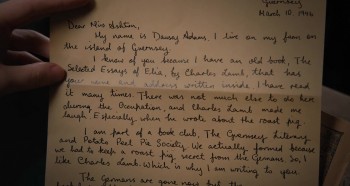 Guernsey
March 10, 1946
Dear Miss Ashton,
My name is Dawsy Adams. I live on my farm on
the island of Guernsey.
I know of you because I have an old book, The
Selected Essays of Elia, by Charles Lamb, that has
your name and address written inside. I have read
it many times. There was not much else to do here
during the Occupation, and Charles Lamb made me
laugh. Especially when he wrote about the roast pig.
I am part of a book club, The Guernsey Literary
and Potato Peel Pie Society. We actually formed because
we had to keep a roast pig secret from the Germans. So, I
like Charles Lamb. Which is why I am writing to you
The Germans are gone now but the